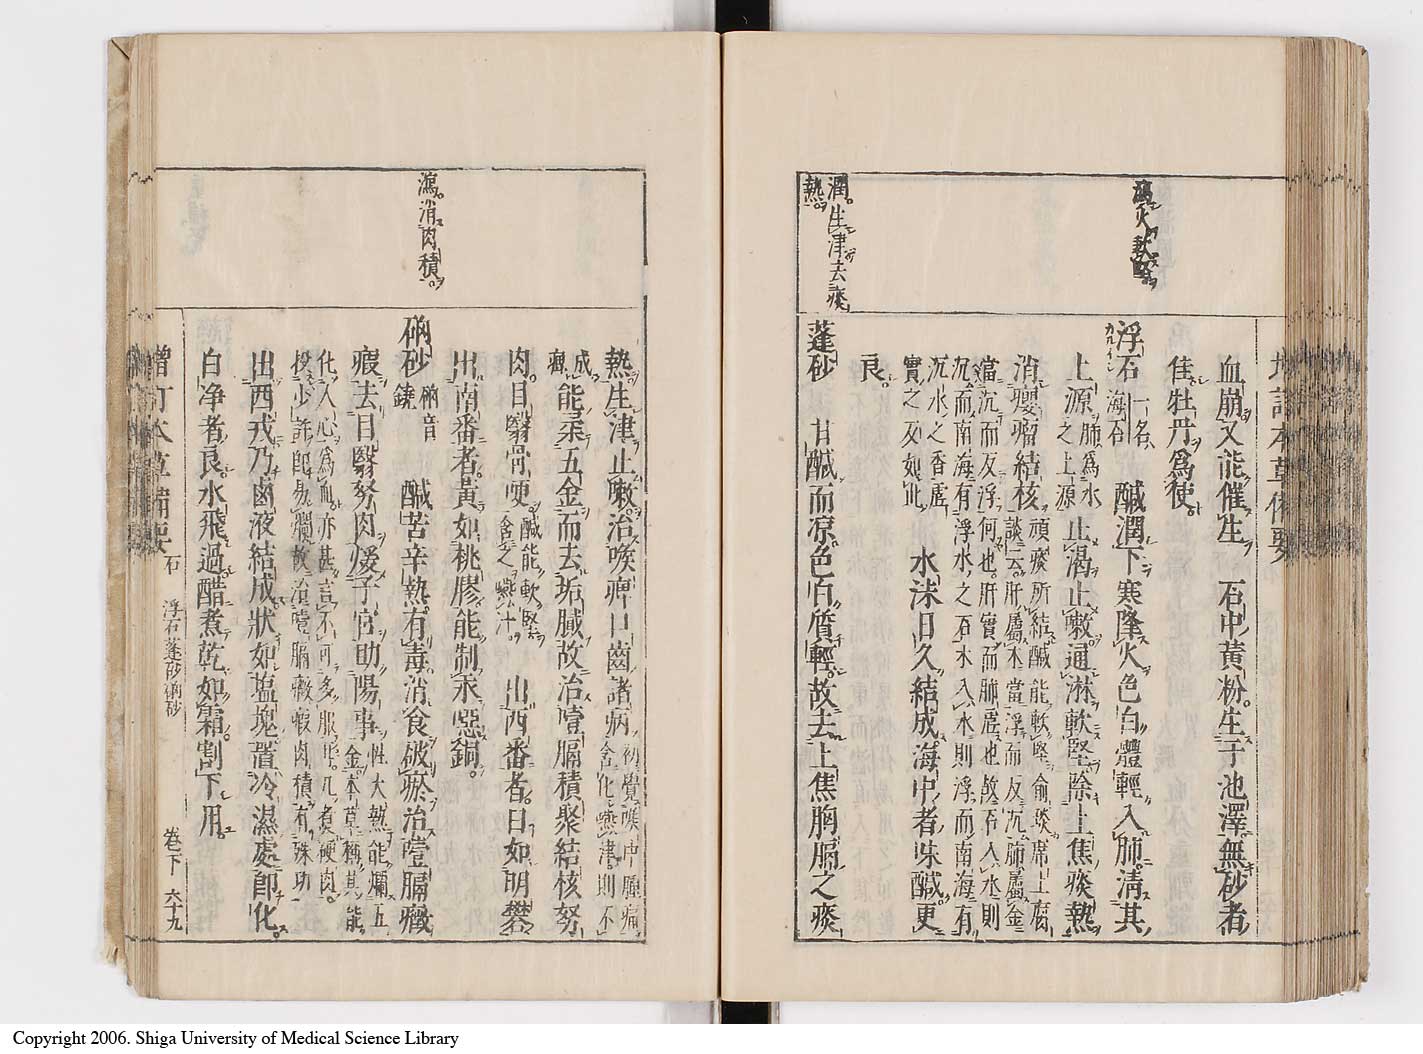 增訂本草備要
血崩又能催生 石中黄粉生于池澤無砂者
佳牡丹爲使
瀉火軟堅
浮石 一名海石 鹹潤下寒降火色白體輕入肺清其
上源 肺爲水之上源 止渴止嗽通淋軟堅除上焦痰熱
消癭瘤結核 頑痰所結鹹能軟堅俞琰席上腐談云肝屬木當浮而反沉肺屬金
當沉而反浮何也肝實而肺虛也故石入水則
沉而南海有浮水之石木入水則浮而南海有
沉水之香虛實之反如此 水沫日久結成海中者味鹹更
良
潤生津去痰熱
蓬砂 甘鹹而凉色白質輕故去上焦胸膈之痰
熱生津止嗽治喉痺口齒諸病 初覺喉中腫痛含化嚥津則不成痈
能柔五金而去垢膩故治噎膈積聚結核努
肉目翳骨哽 鹹能軟堅含之嚥汁 出西番者白如明礬
出南番者黃如桃膠能制汞啞銅
瀉消肉積
硇砂 硇音鐃 鹹苦辛熱有毒消食破瘀治噎膈癥
瘕去目翳努肉煖子宮助陽事 性大熱能爛五金本草稱其能
化人心爲血亦甚言不可多服耳凡煮硬肉
投少許即易爛故治噎膈癥瘕肉積有殊功
出西戎乃鹵液結成狀如塩塊置冷濕處即化
白净者良水飛過醋煮乾如霜刮下用
增訂本草備要 石 浮石蓬砂硇砂 卷下 六十九
Copyright 2006. Shiga University of Medical Science Library